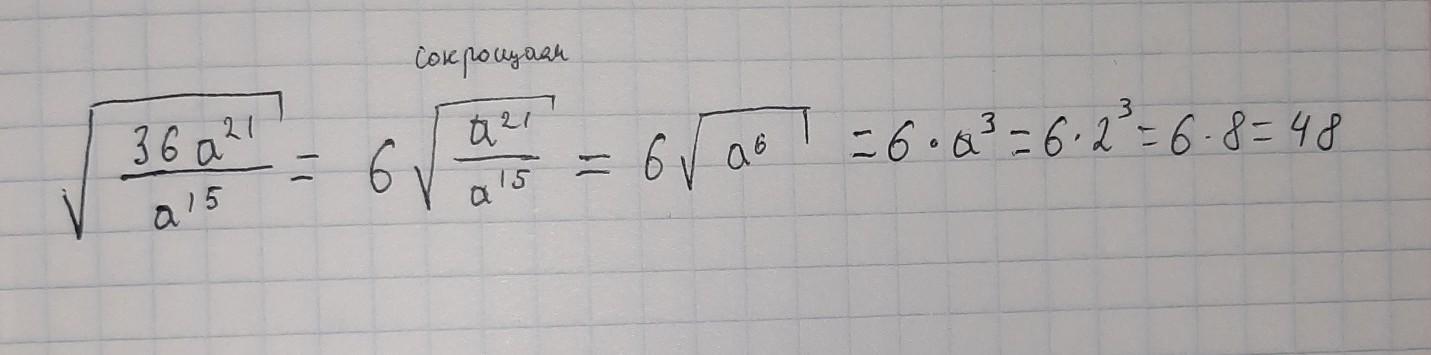 сокрощаан
√(36a²¹/a¹⁵) = 6√(a²¹/a¹⁵) = 6√(a⁶) = 6·a³ = 6·2³ = 6·8 = 48